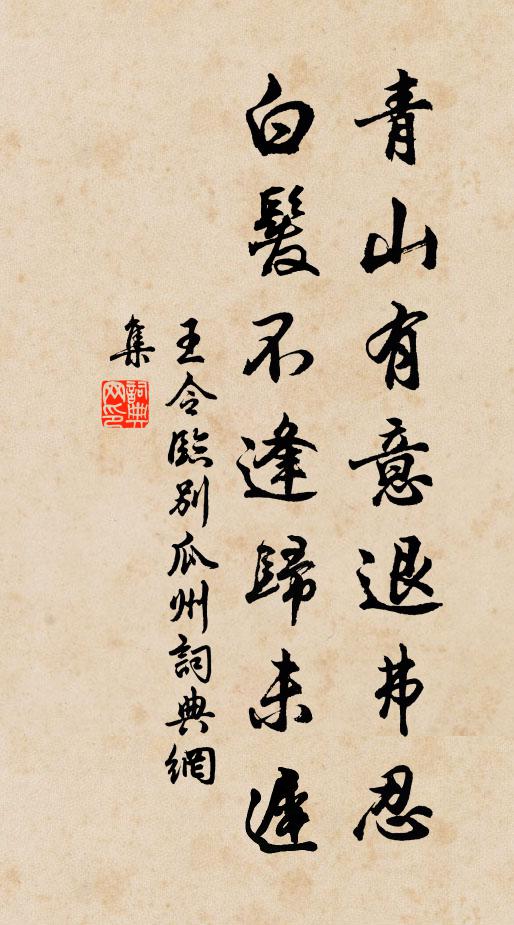 青山有意退弗忍
白髮不逢歸未遲
王令臨別瓜州詞典網
集
詞典網印